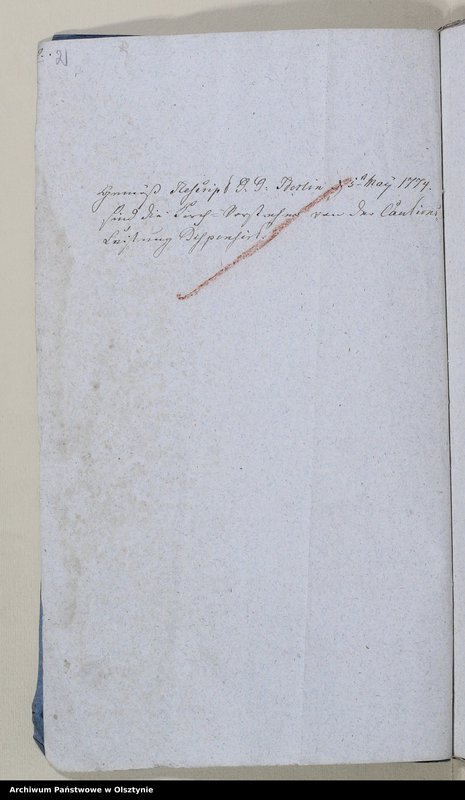 2
Gemäß Rescript D. D. Berlin d 5t May 1779.
sind die Kirch-Vorsteher von der Cautions
Leistung Dispensirt.
Archiwum Państwowe w Olsztynie